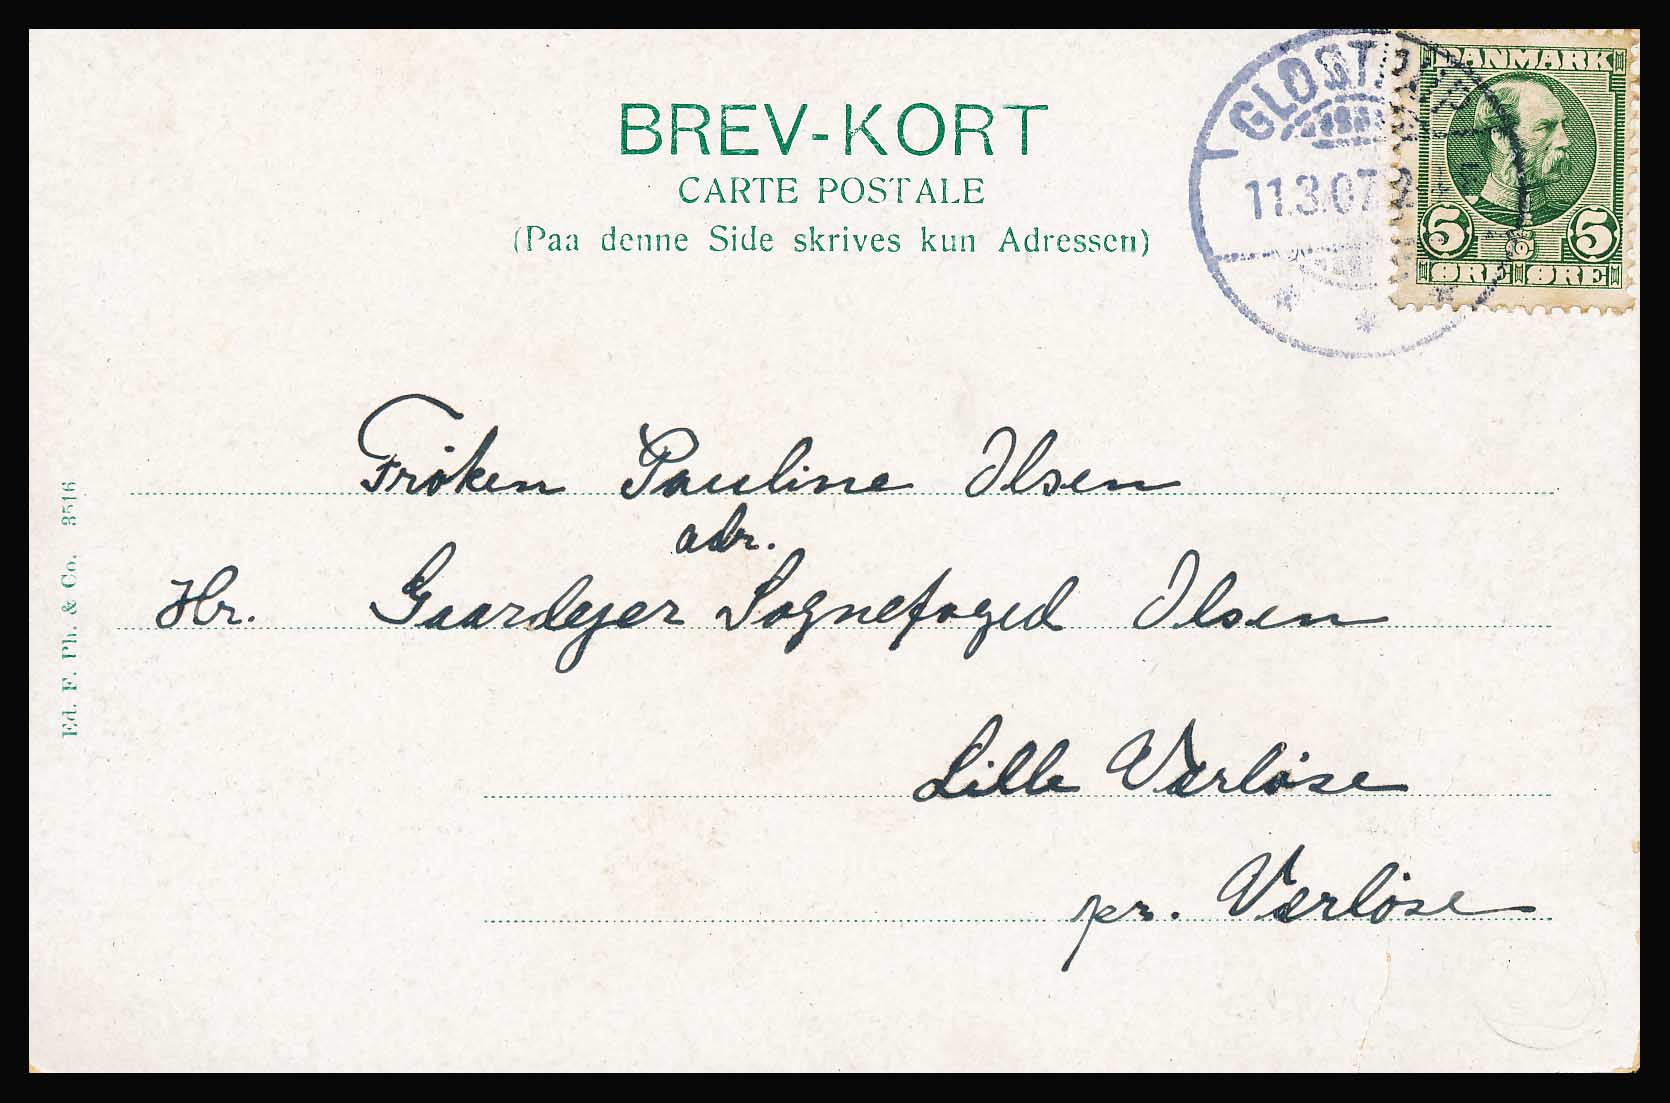 BREV-KORT
CARTE POSTALE
(Paa denne Side skrives kun Adressen)
GLOSTRUP
11.3.07
DANMARK
5 5
ØRE ØRE
Frøken Pauline Olsen
adr.
Hr. Gaardejer Sognefoged Olsen
Lille Værløse
pr. Værløse
Ed. F. Ph. & Co. 3516